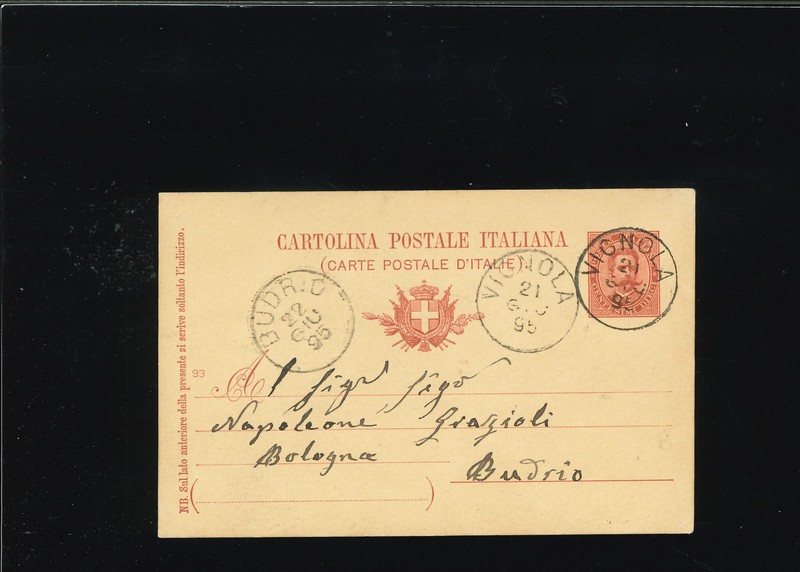 CARTOLINA POSTALE ITALIANA
(CARTE POSTALE D'ITALIE)
VIGNOLA
21
GIU
95
VIGNOLA
21
95
BUDRIO
22
GIU
95
93
NB. Sul lato anteriore della presente si scrive soltanto l'indirizzo.
Al Sigr Sigr
Napoleone Grazioli
Bologna
Budrio